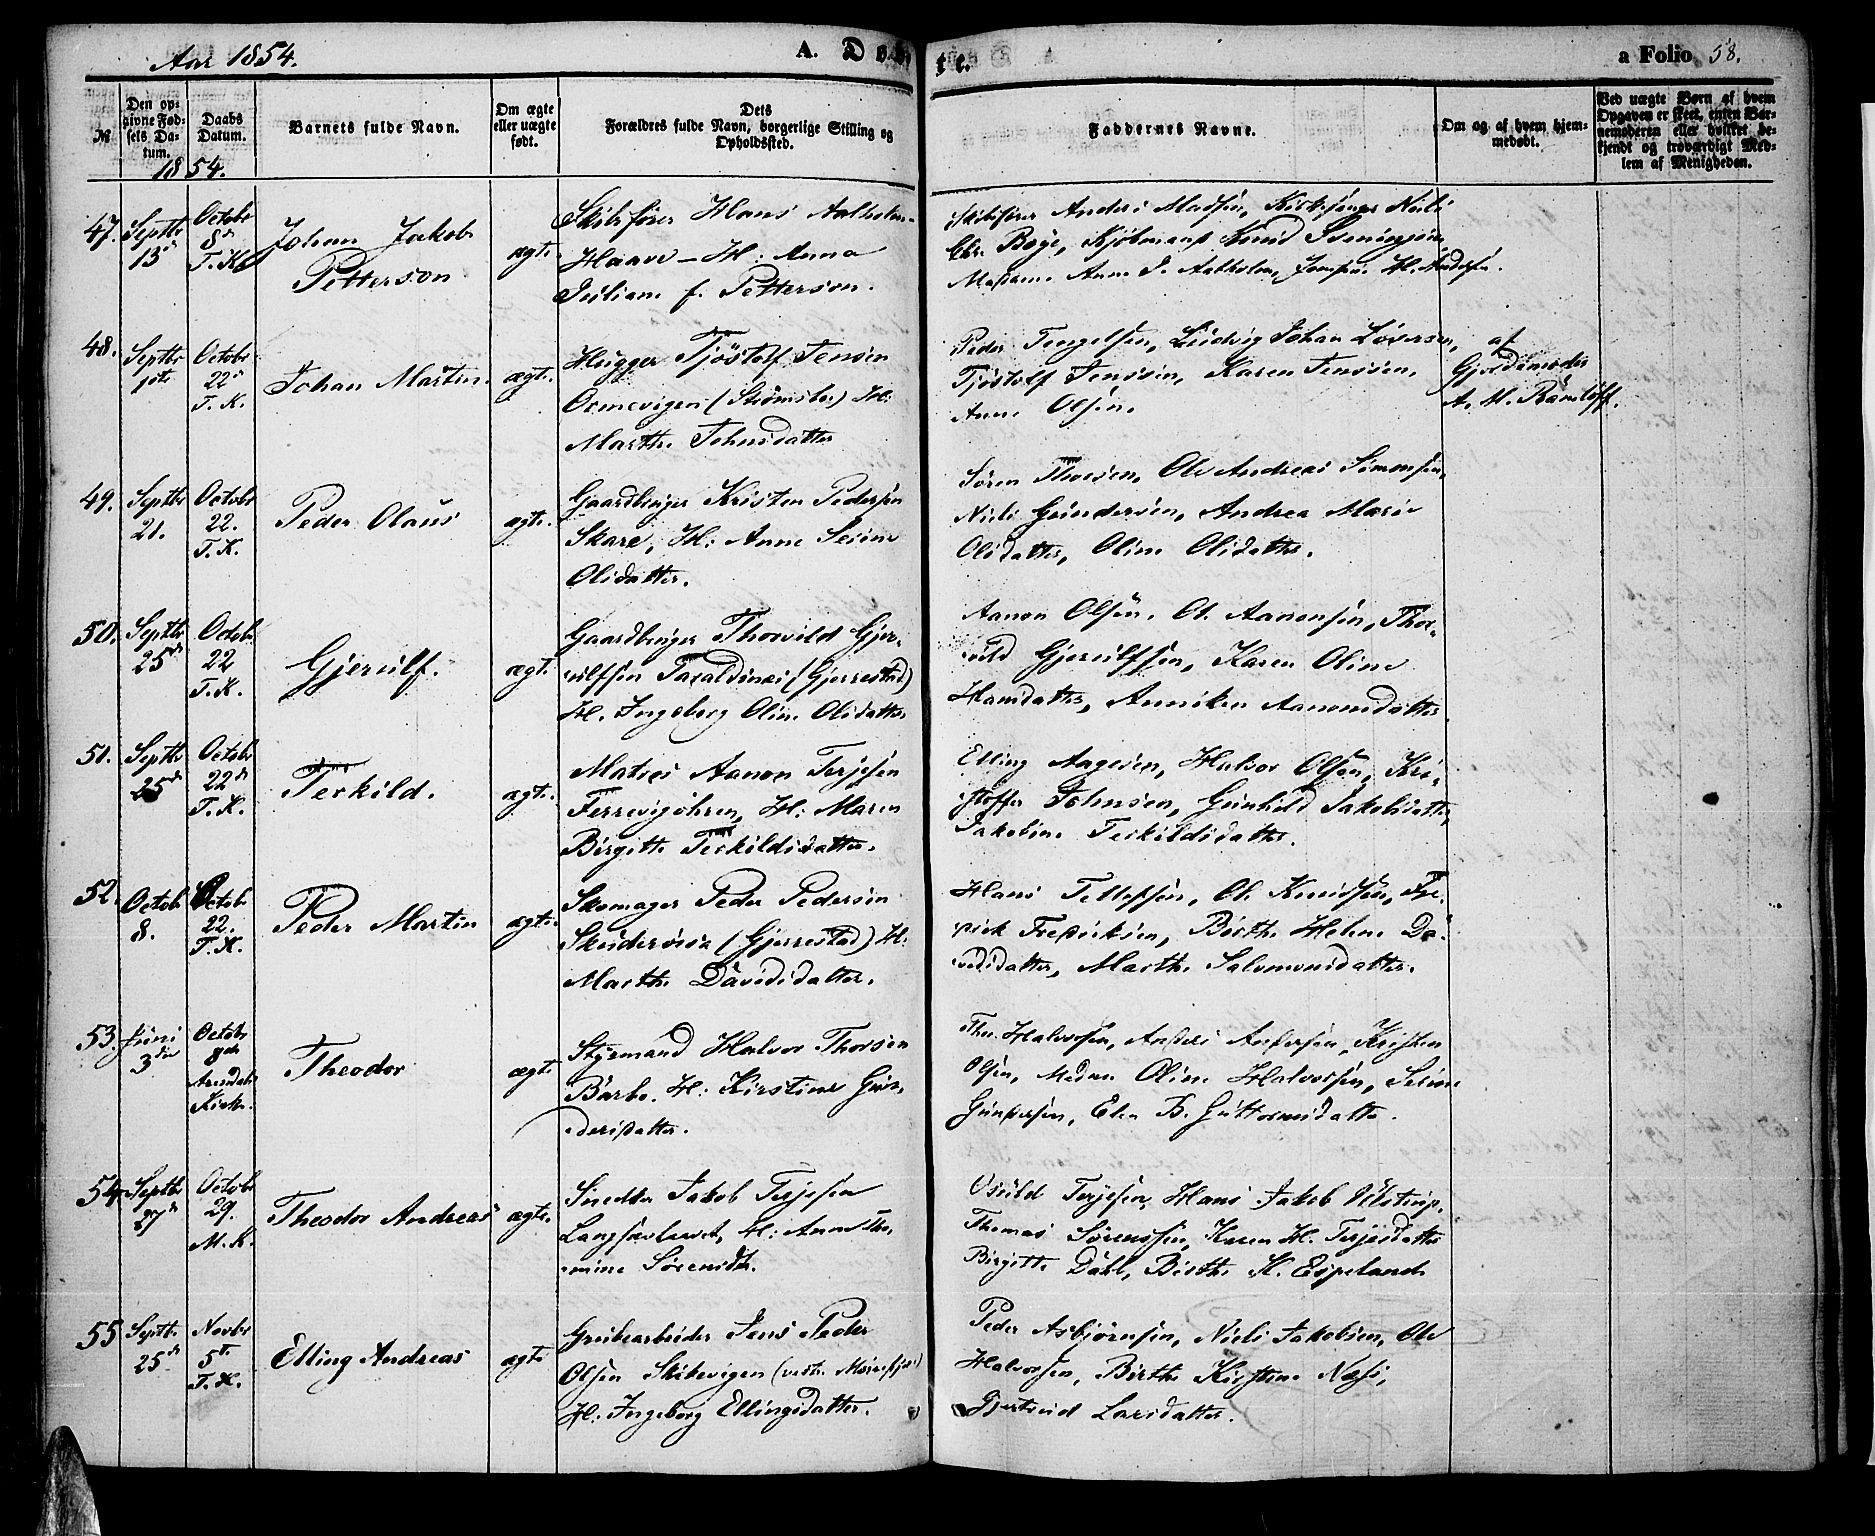 Aar 1854. A. Døbte. a Folio 58.
№ Den opgivne Fødsels Datum. Daabs Datum. Barnets fulde Navn. Om ægte eller uægte født. Dets Forældres fulde Navn, borgerlige Stilling og Opholdssted. Faddernes Navne. Om og af hvem hjemmedøbt. Ved uægte Børn af hvem Opgaven er skeet, enten Barnemoderen eller hvilket bekjendt og troværdigt Medlem af Menigheden.
1854.
47. Septbr 13de Octobr 8de T.K. Johan Jakob Petterson ægte
Skibsfører Hans Aalholm
Haave – H: Anna
Juliane f. Petterson.
Skibsfører Anders Madsen, Kirkesanger Niels
Chr. Boye, Kjøbmand Knud Svenningsen,
Madame Anne J. Aalholm, Jomfru H. Madsen.
48. Septbr 1ste Octobr 22de T.K. Johan Martin. ægte.
Hugger Tjøstolf Jensen
Ormevigen (Strømsbo) H:
Marthe Johnsdatter
Peder Tengelsen, Ludvig Johan Larsen,
Tjøstolf Jenssen, Karen Jenssen,
Anne Olsen.
af
Gjordemoder
A. M. Ramløff.
49. Septbr 21. Octobr 22. T.K. Peder Olaus ægte.
Gaardbruger Kristen Pedersen
Skare, H: Anne Serine
Olsdatter.
Søren Thorsen, Ole Andreas Simonsen,
Niels Gundersen, Andrea Marie
Olsdatter, Oline Olsdatter.
50. Septbr 25de Octobr 22 T.K. Gjerulf. ægt.
Gaardbruger Thorvild Gjer-
ulfsen Taraldsnæs (Gjerrestad)
H. Ingeborg Oline Olsdatter
Aanon Olsen, Ol. Aanonsen, Thor-
vild Gjerulfsen, Karen Oline
Hansdatter, Anniken Aanonsdatter
51. Septbr 25de Octobr 22de T.K. Terkild. ægte.
Matros Aanon Terjesen
Ferrevigøhren, H: Maren
Birgitte Terkildsdatter.
Elling Aagesen, Halvor Olsen, Kri-
stoffer Johnsen, Gunhild Jakobsdatter,
Jakobine Terkildsdatter.
52. Octobr 8. Octobr 22. T.K. Peder Martin ægte.
Skomager Peder Pedersen
(Gjerrestad) H:
Marthe Davidsdatter.
Hans Tellefsen, Ol. Knudsen, Fre-
derik Frederiksen, Birthe Helene Da-
vidsdatter, Marthe Salomonsdatter.
53. Juni 3die Octobr 8de Arendals Kirke. Theodor ægte
Styrmand Halvor Thorsen
Barbo. H: Kirstine Gun-
dersdatter.
Tho. Halvorsen, Anders Andersen, Kristen
Olsen, Madme Oline Halvorsen, Serine
Gundersen, Elen B. Guttormsdatter.
54. Septbr 27de Octobr 29. M.K. Theodor Andreas ægte.
Snedker Jakob Terjesen
Langsævhavet, H: Anne Tho-
mine Sørensdtr.
Osuld Terjesen, Hans Jakob Ulstrup,
Thomas Sørenssen, Karen H. Terjesdatter
Birgitte Dahl, Birthe K. Espeland
55 Septbr 25de Novbr 5te T.K. Elling Andreas ægte
Grubearbeider Jens Peder
Olsen Skibevigen
H: Ingeborg Ellingsdatter.
Peder Asbjørnsen, Niels Jakobsen, Ole
Halvorsen, Birthe Kirstine Næss,
Gjertrud Larsdatter.